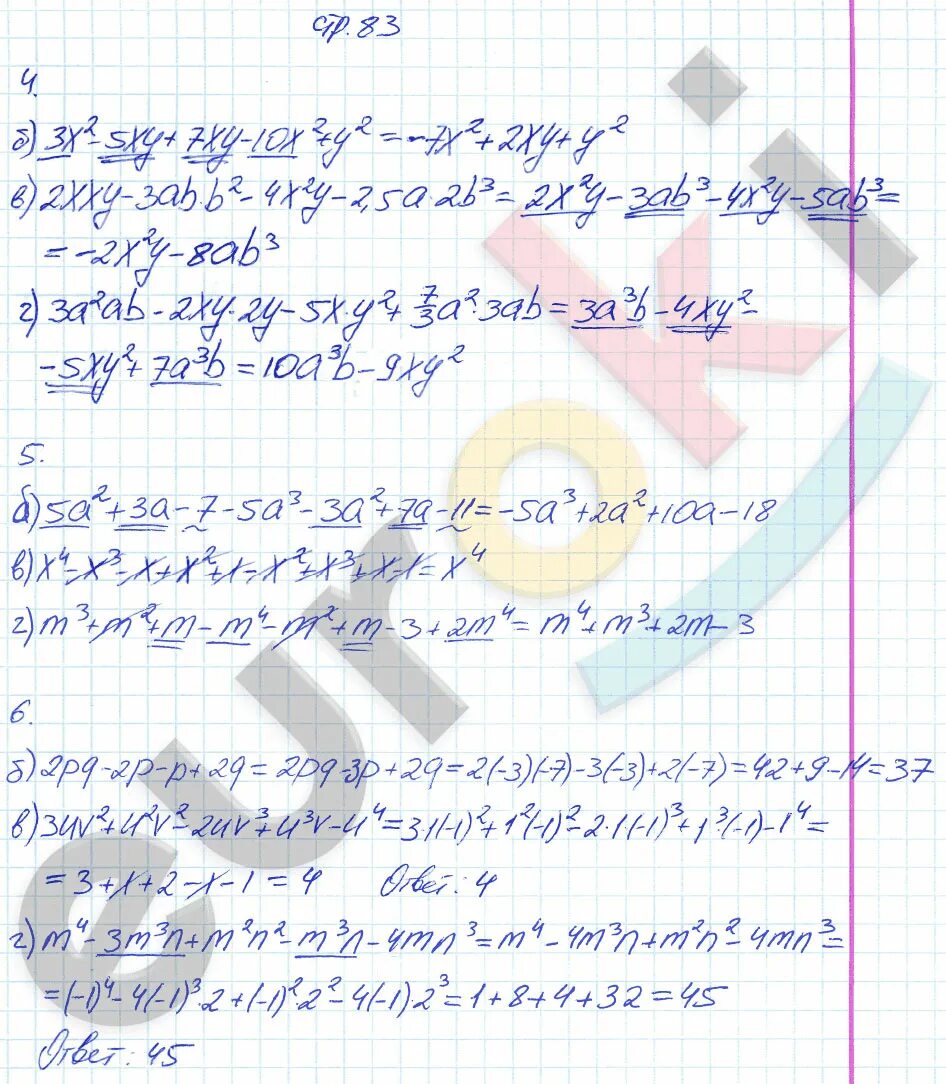 стр. 83
4.
б) 3x² - 5xy + 7xy - 10x² + y² = -7x² + 2xy + y²
в) 2xxy - 3ab·b² - 4x²y - 2,5a·2b³ = 2x²y - 3ab³ - 4x²y - 5ab³ =
= -2x²y - 8ab³
г) 3a²ab - 2xy·2y - 5x·y² + 7/3a²·3ab = 3a³b - 4xy² -
-5xy² + 7a³b = 10a³b - 9xy²
5.
б) 5a² + 3a - 7 - 5a³ - 3a² + 7a - 11 = -5a³ + 2a² + 10a - 18
в) x⁴ - x³ - x + x² + x - x² + x³ + x - x = x⁴
г) m³ + m² + m - m⁴ - m² + m - 3 + 2m⁴ = m⁴ + m³ + 2m - 3
6.
б) 2pq - 2p - p + 2q = 2pq - 3p + 2q = 2(-3)(-7) - 3(-3) + 2(-7) = 42 + 9 - 14 = 37
в) 3uv² + u²v² - 2uv³ + u³v - u⁴ = 3·1(-1)² + 1²(-1)² - 2·1(-1)³ + 1³·(-1) - 1⁴ =
= 3 + 1 + 2 - 1 - 1 = 4 Ответ: 4
г) m⁴ - 3m³n + m²n² - m³n - 4mn³ = m⁴ - 4m³n + m²n² - 4mn³ =
= (-1)⁴ - 4(-1)³·2 + (-1)²·2² - 4(-1)·2³ = 1 + 8 + 4 + 32 = 45
Ответ: 45
euroki